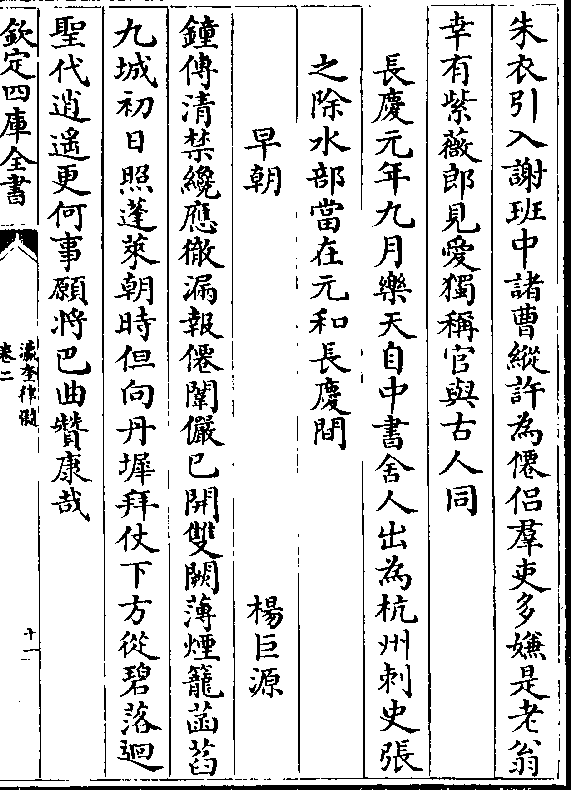 朱衣引入謝班中諸曹縱許為僊侣羣吏多嫌是老翁
幸有紫薇郎見愛獨稱官與古人同
長慶元年九月樂天自中書舍人出為杭州刺史張
之除水部當在元和長慶間
早朝 楊巨源
鐘傳清禁纔應徹漏報僊闈儼已開雙闕薄煙籠菡萏
九城初日照蓬萊朝時但向丹墀拜仗下方從碧落迴
聖代逍遙更何事願將巴曲贊康哉
欽定四庫全書
瀛奎律髓
卷二
十一